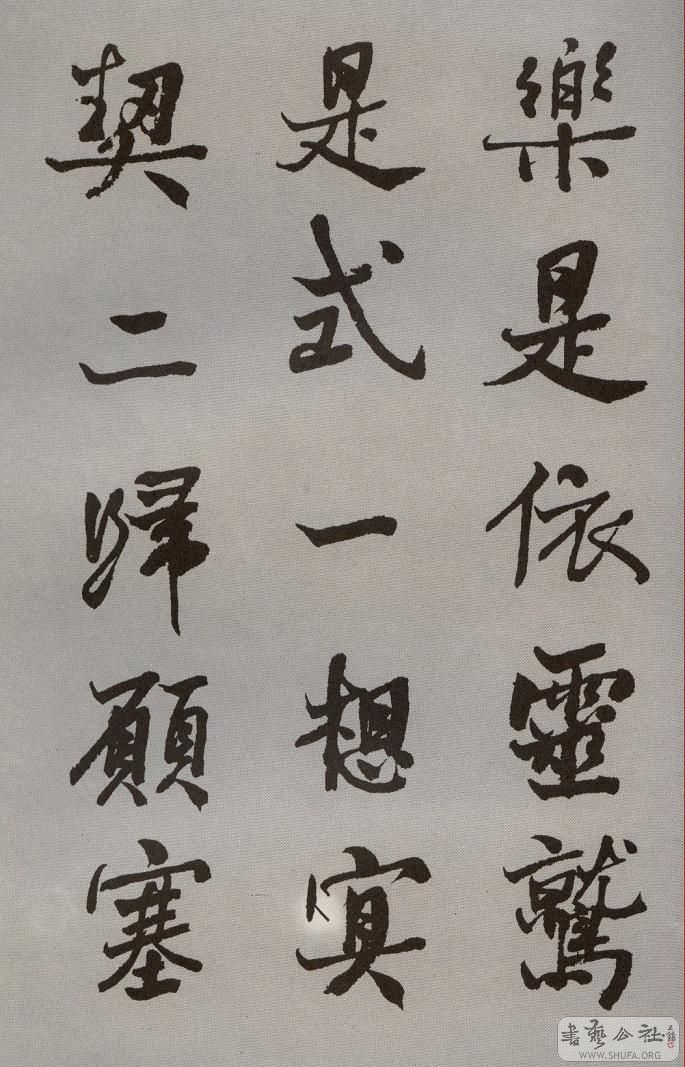 樂是依靈鷲
是式一想冥
契二歸願塞
書藝公社
WWW.SHUFA.ORG